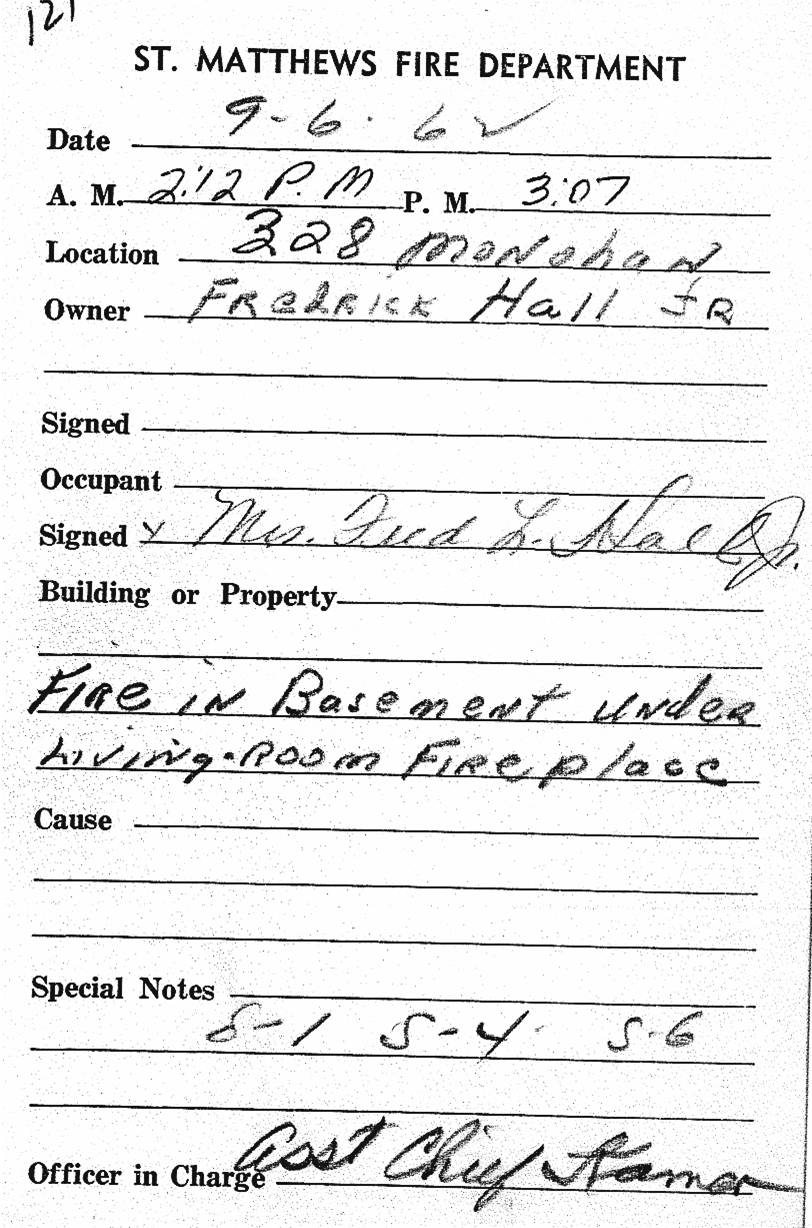 121
ST. MATTHEWS FIRE DEPARTMENT
Date 9-6-62
A. M. 2:12 P. M P. M. 3:07
Location 328 Monohan
Owner Fredrick Hall Jr
Signed
Occupant
Signed x Mrs. Fred L. Hall Jr.
Building or Property
Fire in Basement under
Living-Room Fire place
Cause
Special Notes
S-1 S-4 S-6
Officer in Charge Asst Chief Kamer